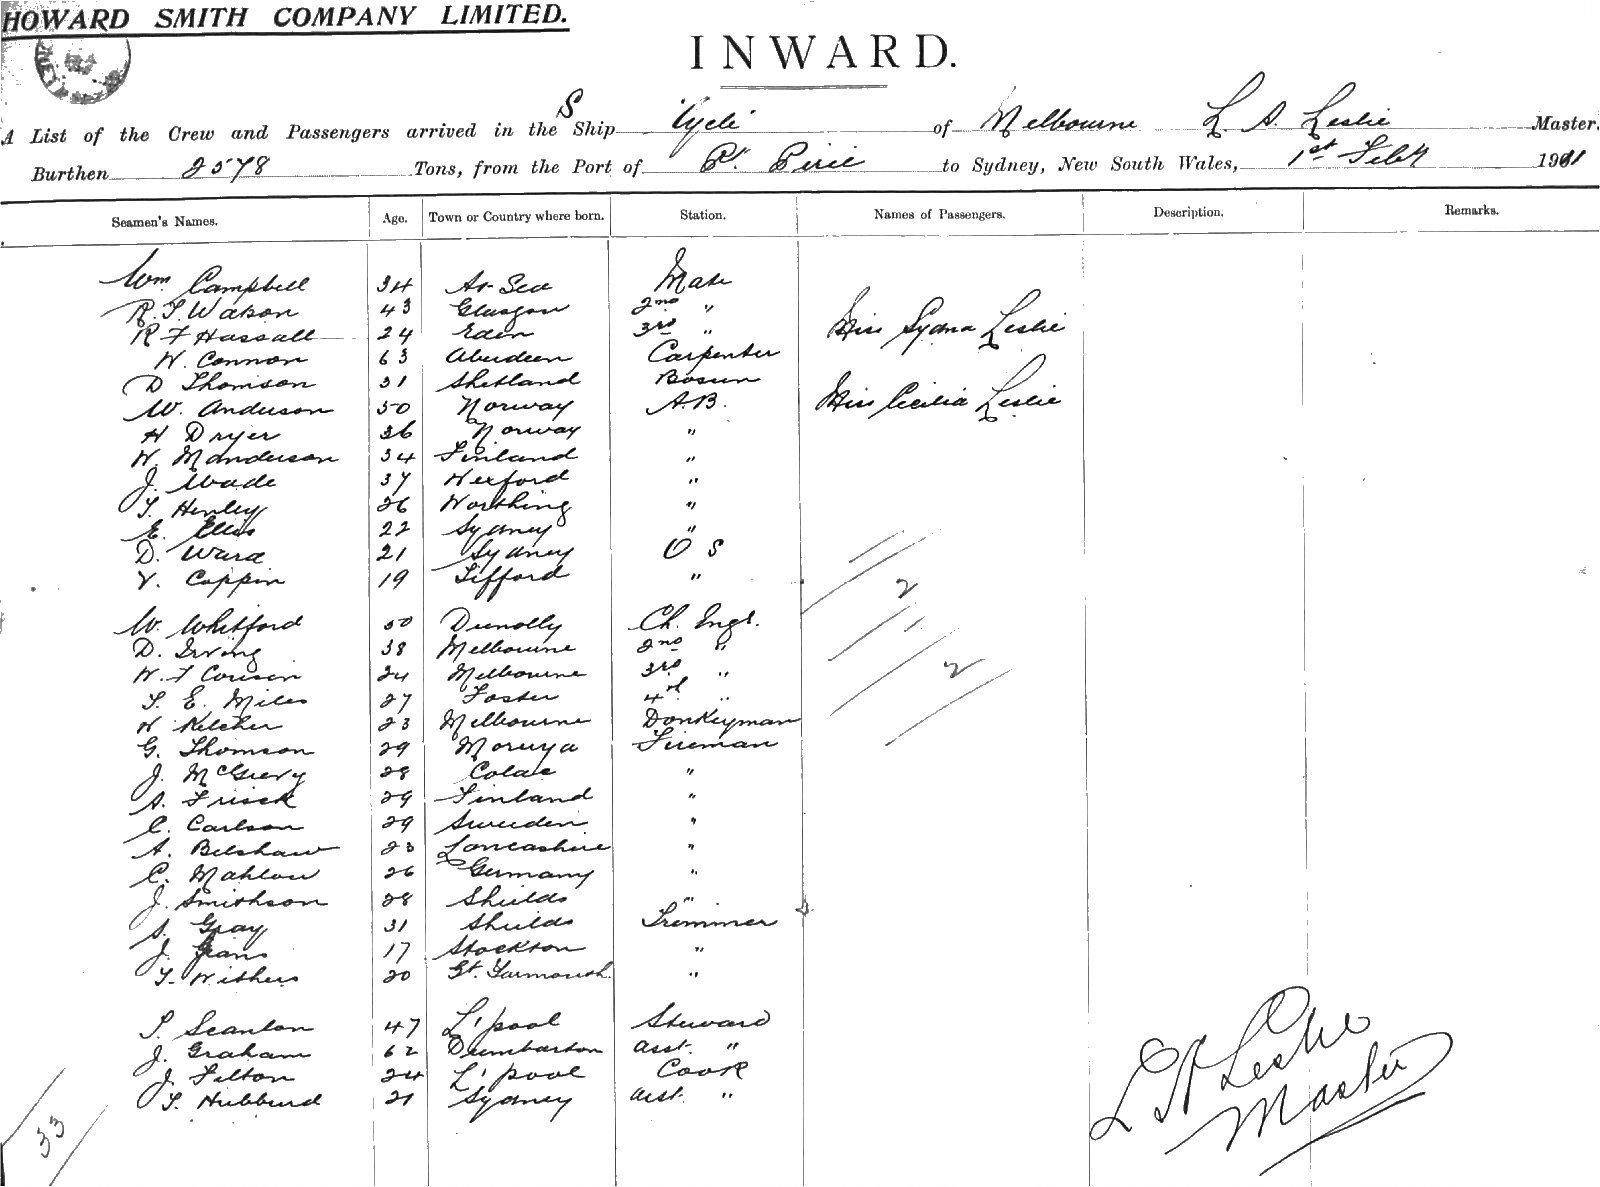 HOWARD SMITH COMPANY LIMITED.
INWARD.
A List of the Crew and Passengers arrived in the S Ship Cycle of Melbourne L. A. Leslie Master.
Burthen 2578 Tons, from the Port of Pt. Pirie to Sydney, New South Wales, 1st Feby 1911
Seamen's Names. Age. Town or Country where born. Station. Names of Passengers. Description. Remarks.
Wm Campbell 34 At Sea Mate
R. T. Watson 43 Glasgow 2nd "
R F Hassall 24 Eden 3rd " Miss Sydna Leslie
W. Connon 63 Aberdeen Carpenter
D Thomson 31 Shetland Bosun
W. Anderson 50 Norway A.B. Miss Cecilia Leslie
H Dryer 36 Norway "
W. Manderson 34 Finland "
J. Wade 37 Wexford "
T. Henley 26 Worthing "
E. Ellis 22 Sydney "
D. Ward 21 Sydney O S
V. Coppin 19 Lifford "
2
W. Whitford 50 Dunolly Ch. Engr.
D. Irving 38 Melbourne 2nd "
W. F Cousen 24 Melbourne 3rd " 2
T. E. Miles 27 Foster 4th "
H Kelcher 23 Melbourne Donkeyman
G. Thomson 29 Moruya Fireman
J. McGrevy 28 Colac "
A. Frisck 29 Finland "
C. Carlson 29 Sweeden "
A. Belshaw 23 Lancashire "
C. Mahlow 26 Germany "
J. Smithson 28 Shields "
S. Gray 31 Shields Trimmer
J. Jeans 17 Stockton "
T. Withers 20 Gt. Yarmouth "
T. Scanlon 47 L'pool Steward
J. Graham 62 Dumbarton asst. "
J. Felton 24 L'pool Cook
T. Hubbard 21 Sydney asst. "
33
L A Leslie
Master